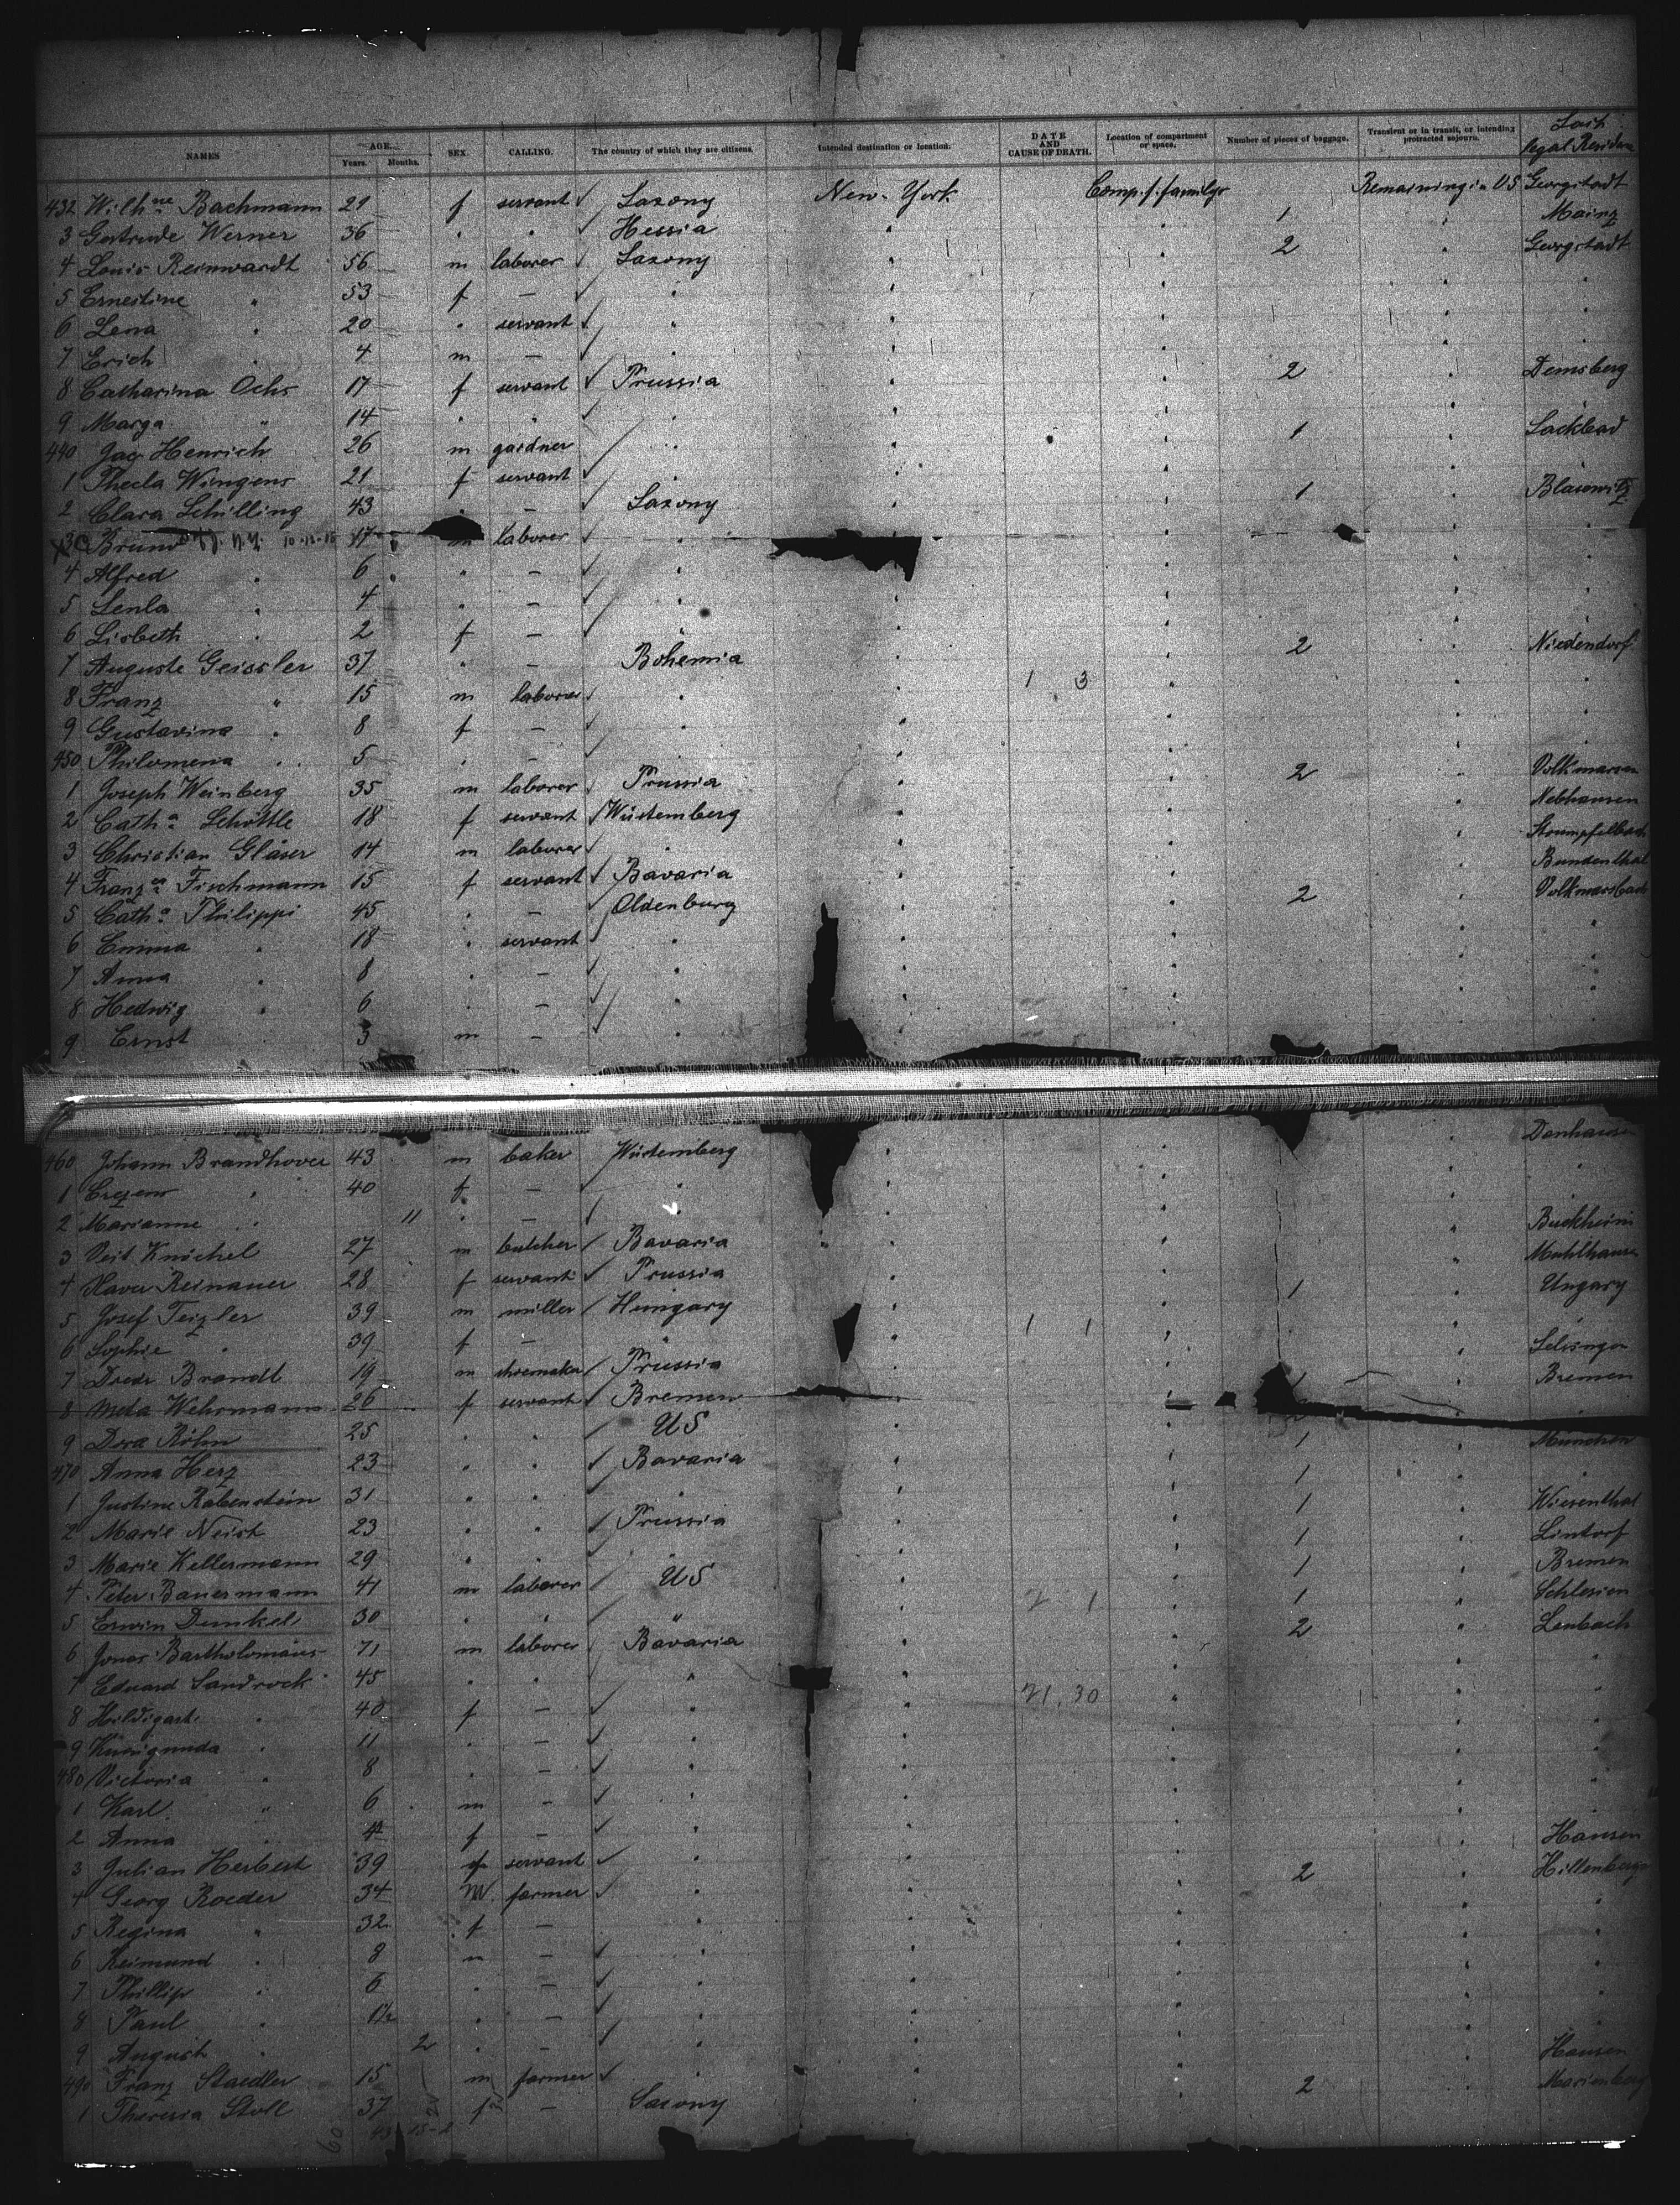 NAMES AGE. Years. Months. SEX. CALLING. The country of which they are citizens. Intended destination or location. DATE AND CAUSE OF DEATH. Location of compartment or space. Number of pieces of baggage. Transient or in transit, or intending protracted sojourn. Last legal Residence
432 Wilh ne Bachmann 21 f servant Saxony New-York Comp. f. familys Remaining in US Georgstadt
3 Gertrude Werner 36 " " Hessia " 1 " Mainz
4 Louis Reinwardt 56 m laborer Saxony " 2 " Georgstadt
5 Ernestine " 53 f — " " " "
6 Lena " 20 " servant " " " "
7 Erich " 4 m — " " " "
8 Catharina Ochs 17 f servant Prussia " 2 " Demsberg
9 Marga " 14 " " " " "
440 Jac Henrich 26 m gardner " " 1 " Lackbad
1 Thecla Wingens 21 f servant " "
2 Clara Schilling 43 " — Saxony " 1 " Blasewitz
3 Bruno 17 m laborer " "
4 Alfred " 6 " — " " "
5 " 4 " — " " "
6 Lisbeth " 2 f — " " "
7 Auguste Geissler 37 " — Bohemia " 2 " Niedendorf
8 Franz " 15 m laborer " " 1 3 "
9 Gustavina " 8 f — " " "
450 Philomena " 5 " — " " "
1 Joseph Weinberg 35 m laborer Prussia " 2 " Volkmarsen
2 Cath a Schöttle 18 f servant Würtemberg " " Nebhausen
3 Christian Gläser 14 m laborer " " " Strumpfelbach
4 Franz ca Fischmann 15 f servant Bavaria " " Bundenthal
5 Cath a Philippi 45 " — Oldenburg " 2 " Volkmarsbach
6 Emma " 18 " servant " " "
7 Anna " 8 " — " " "
8 Hedwig " 6 " — " " "
9 Ernst " 3 m — " " "
460 Johann Brandhover 43 m baker Würtemberg " " Donhausen
1 Crezens " 40 f — " " "
2 Marianne " 11 " — " "
3 Veit Knöchel 27 m butcher Bavaria " " Buckheim
4 Xaver Reinauer 28 f servant Prussia " " Muhlhausen
5 Josef Teizler 39 m miller Hungary " 1 " Ungary
6 Sophie " 39 f — " " 1 1 "
7 Died Brandt 19 m shoemaker Prussia " " Selsingen
8 Meta Wehrmann 26 f servant Bremen " 1 " Bremen
9 Dora Röhn 25 " " US " 2 "
470 Anna Herz 23 " " Bavaria " 1 " München
1 Justine Rabenstein 31 " " " " 1 " "
2 Marie Neist 23 " " Prussia " 1 " Wiesenthal
3 Marie Kellermann 29 " " " " 1 " Lintorf
4 Peter Bauermann 41 m laborer US " 1 " Bremen
5 Erwin Dunkel 30 " " " " 2 1 1 " Schlesien
6 Jonas Bartholomäus 71 m laborer Bavaria " 2 " Lenbach
7 Eduard Sandrock 45 " " " " "
8 Hildigart " 40 f — " " 21.30 "
9 Kunigunda " 11 " — " " "
480 Victoria " 8 " — " " "
1 Karl " 6 m — " " "
2 Anna " 4 f — " " "
3 Julian Herbert 39 f servant " " " Hausen
4 Georg Roeder 34 M. farmer " " 2 " Hillenberg
5 Regina " 32 f — " " "
6 Reimund " 8 m — " " "
7 Phillip " 6 " — " " "
8 Paul " 1½ " — " " "
9 August " 2 " — " " "
490 Franz Staedler 15 m farmer " " " Hausen
1 Theresia Stoll 37 f — Saxony " 2 " Marienberg